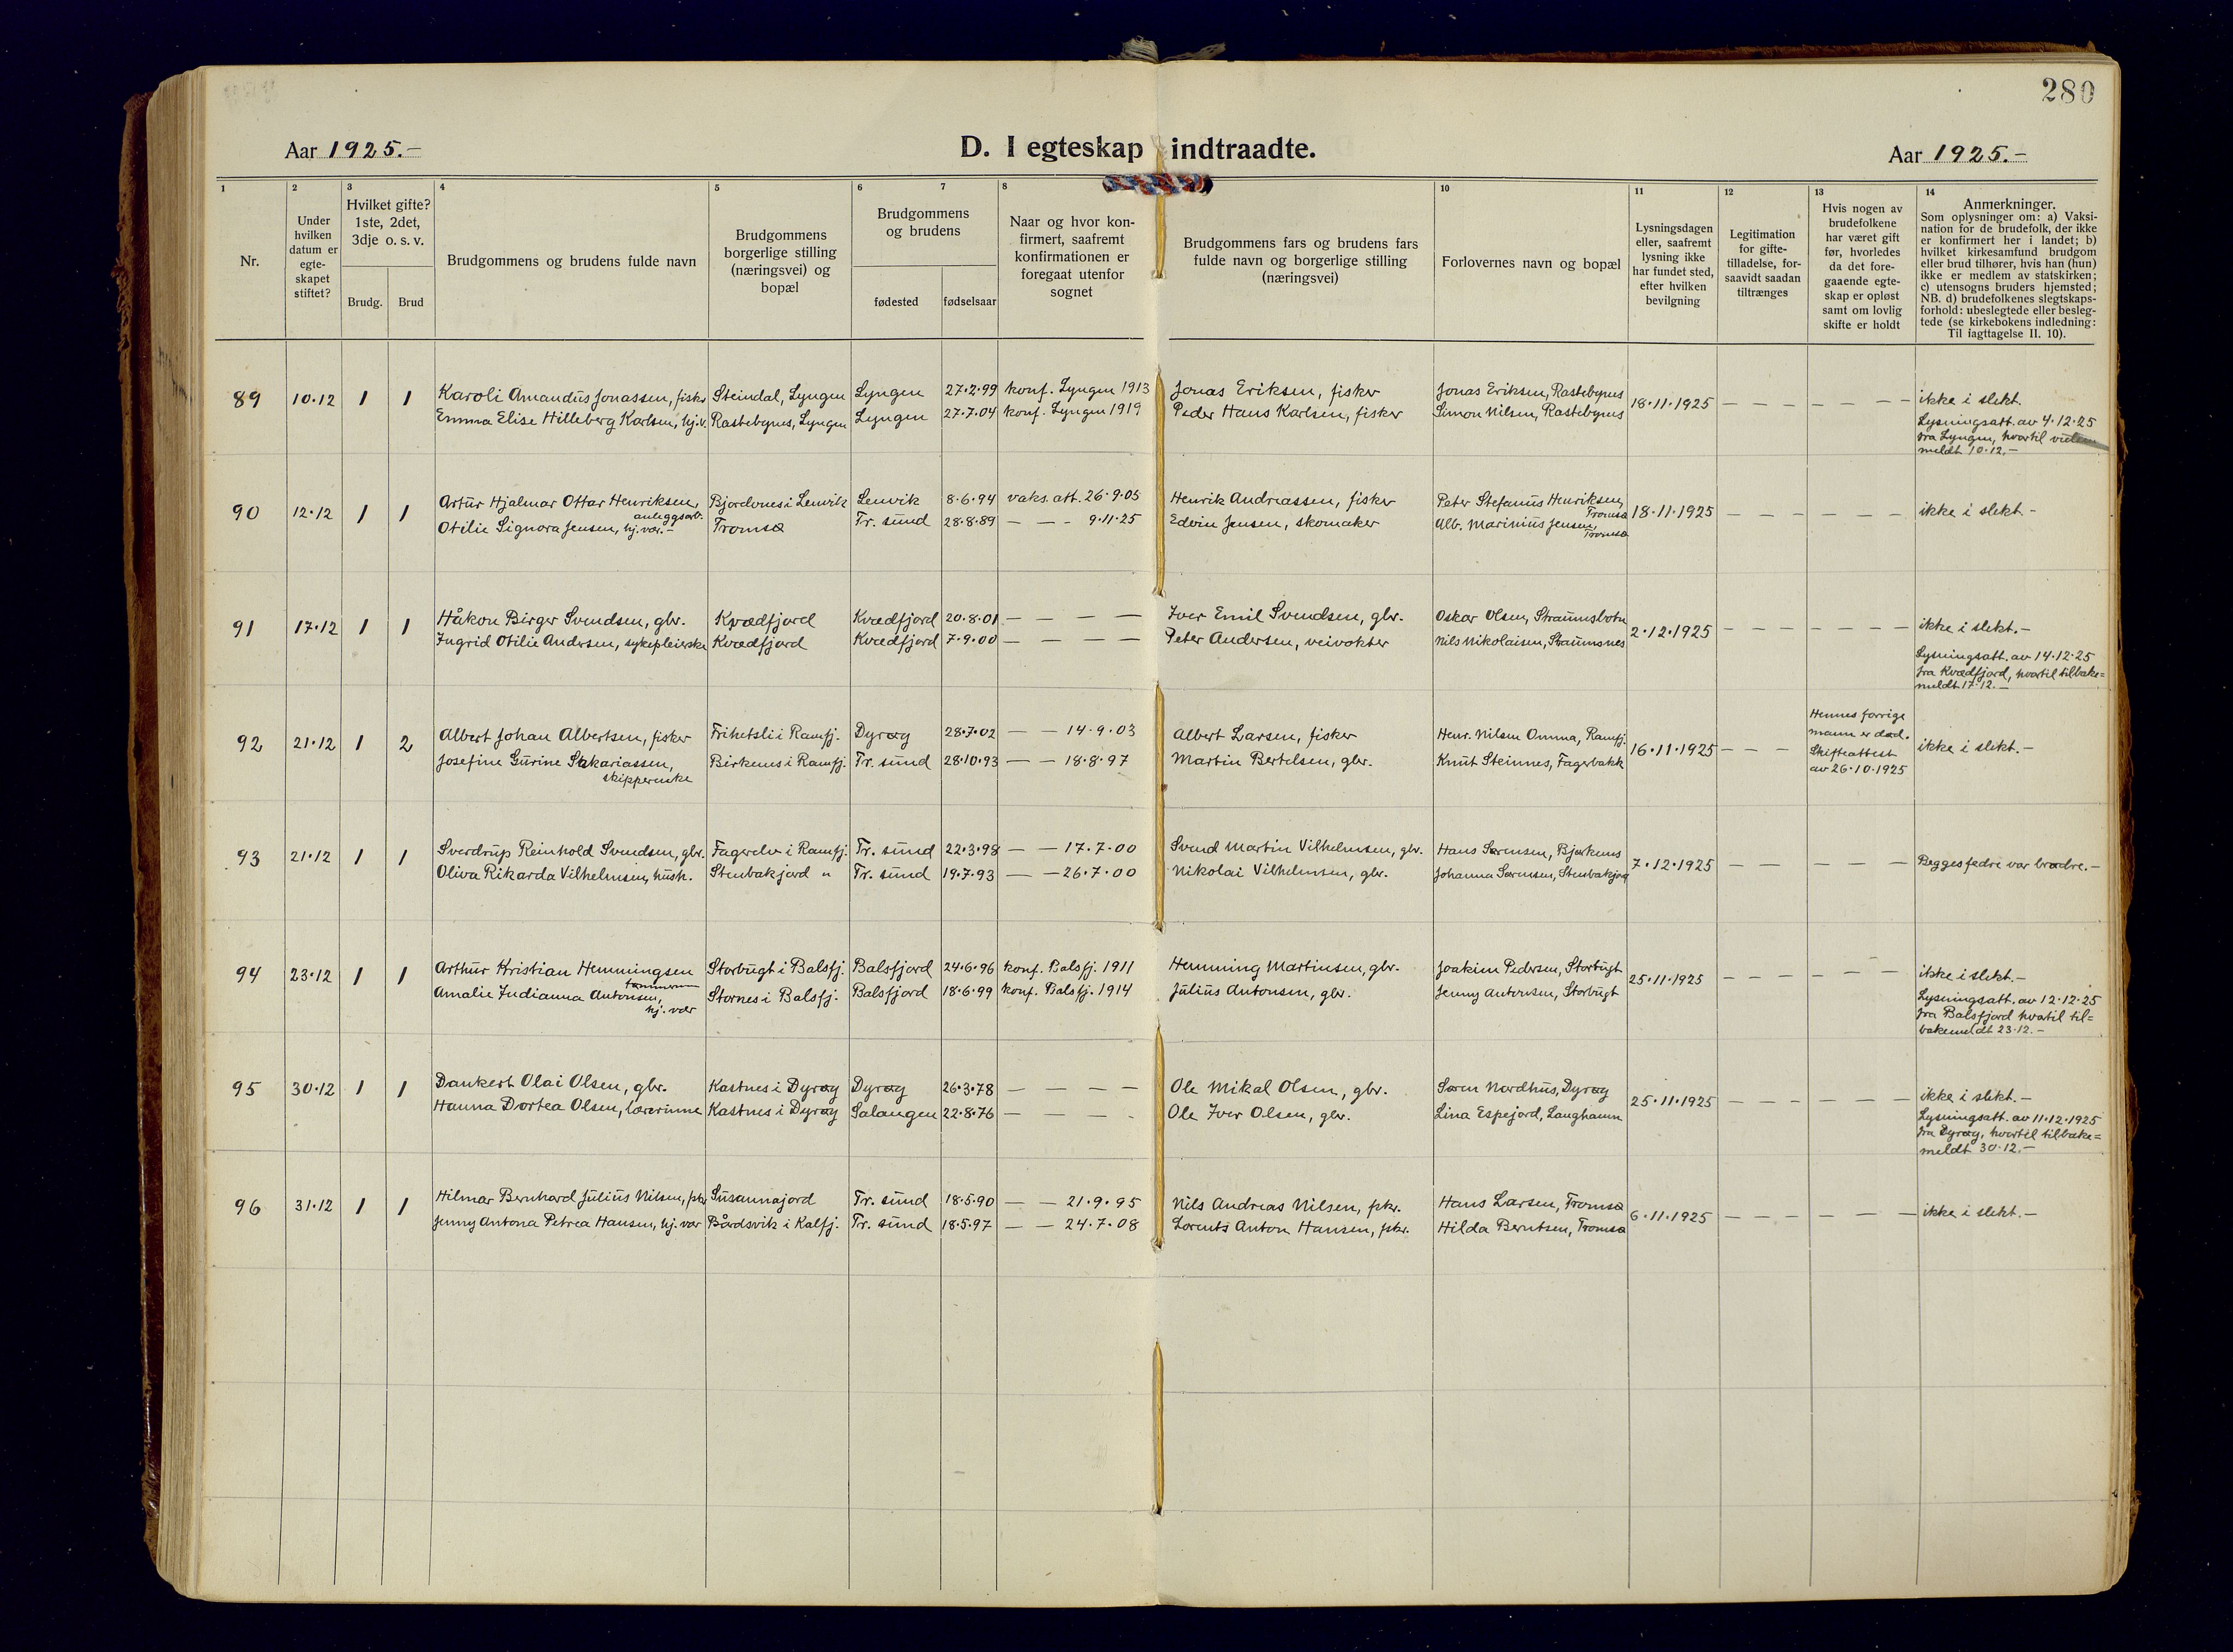 280
Aar 1925.-
D. I egteskap indtraadte.
Aar 1925.-
1 2 3 4 5 6 7 8 10 11 12 13 14
Nr.
Under hvilken datum er egte-skapet stiftet?
Hvilket gifte? 1ste, 2det, 3dje o. s. v.
Brudg.
Brud
Brudgommens og brudens fulde navn
Brudgommens borgerlige stilling (næringsvei) og bopæl
Brudgommens og brudens
fødested
fødselsaar
Naar og hvor kon-firmert, saafremt konfirmationen er foregaat utenfor sognet
Brudgommens fars og brudens fars fulde navn og borgerlige stilling (næringsvei)
Forlovernes navn og bopæl
Lysningsdagen eller, saafremt lysning ikke har fundet sted, efter hvilken bevilgning
Legitimation for gifte-tilladelse, for-saavidt saadan tiltrænges
Hvis nogen av brudefolkene har været gift før, hvorledes da det fore-gaaende egte-skap er opløst samt om lovlig skifte er holdt
Anmerkninger.
Som oplysninger om: a) Vaksi-
nation for de brudefolk, der ikke
er konfirmert her i landet; b)
hvilket kirkesamfund brudgom
eller brud tilhører, hvis han (hun)
ikke er medlem av statskirken;
c) utensogns bruders hjemsted;
NB. d) brudefolkenes slegtskaps-
forhold: ubeslegtede eller besleg-
tede (se kirkebokens indledning:
Til iagttagelse II. 10).
89 10.12 1 1 Karoli Amandus Jonassen, fisker Steindal, Lyngen Lyngen 27.2.99 konf. Lyngen 1913 Jonas Eriksen, fisker Jonas Eriksen, Rastebynes 18.11.1925 — — — — — — ikke i slekt.
Emma Elise Hilleberg Karlsen, hj.v. Rastebynes, Lyngen Lyngen 27.7.04 konf. Lyngen 1919 Peder Hans Karlsen, fisker Simon Nilsen, Rastebynes
Lysningsatt. av 4.12.25
fra Lyngen, hvortil
meldt 10.12.—
90 12.12 1 1 Artur Hjalmar Ottar Henriksen, anleggsarb. Bjordvnes i Lenvik Lenvik 8.6.94 vaks. att. 26.9.05 Henrik Andreassen, fisker Peter Stefanus Henriksen, Tromsø 18.11.1925 — — — — — — ikke i slekt -
Otilie Signora Jensen, hj. vær.— Tromsø Tr. sund 28.8.89 — — - 9.11.25 Edvin Jensen, skomaker Alb. Marinius Jensen, Tromsø
91 17.12 1 1 Håkon Birger Svendsen, gbr. Kvædfjord Kvædfjord 20.8.01 — — — — Iver Emil Svendsen, gbr. Oskar Olsen, Straumsbotn 2.12.1925 — — — — — — ikke i slekt.-
Ingrid Otilie Andersen, sykepleierske Kvædfjord Kvædfjord 7.9.00 — — — — Peter Andersen, veivokter Nils Nikolaisen, Straumsnes
Lysningsatt. av 14.12.25
fra Kvædfjord, hvortil tilbake=
meldt 17.12.—
92 21.12 1 2 Albert Johan Albertsen, fisker Frihetsli i Ramfj. Dyrøy 28.7.02 — — 14.9.03 Albert Larsen, fisker Henr. Nilsen Omma, Ramfj. 16.11.1925 — — — Hennes forrige mann er død. Skifteattest av 26.10.1925 ikke i slekt.-
Josefine Gurine Sakariassen, skipperenke Birkenes i Ramfj. Tr. sund 28.10.93 — — 18.8.97 Martin Bertelsen, gbr. Knut Steinnes, Fagerbakk
93 21.12 1 1 Sverdrup Reinhold Svendsen, gbr. Fagerelv i Ramfj. Tr. sund 22.3.98 — — 17.7.00 Svend Martin Vilhelmsen, gbr. Hans Sørensen, Bjørkenes 7.12.1925 — — — — — Begges fedre var brødre.-
Oliva Rikarda Vilhelmsen, hush. Stenbakjord " Tr. sund 19.7.93 — — 26.7.00 Nikolai Vilhelmsen, gbr. Johanna Sørensen, Stenbakjord
94 23.12 1 1 Arthur Kristian Hemmingsen Storbugt i Balsfj. Balsfjord 24.6.96 konf. Balsfj. 1911 Hemming Martinsen, gbr. Joakim Pedersen, Storbugt 25.11.1925 — — — — — — ikke i slekt.-
Amalie Indianna Antonsen, hj. vær Stornes i Balsfj. Balsfjord 18.6.99 konf. Balsfj. 1914 Julius Antonsen, gbr. Jenny Antonsen, Storbugt
Lysningsatt. av 12.12.25
fra Balsfjord hvortil til=
bakemeldt 23.12.-
95 30.12 1 1 Dankert Olai Olsen, gbr. Kastnes i Dyrøy Dyrøy 26.3.78 — — — — Ole Mikal Olsen, gbr. Søren Nordhus, Dyrøy 25.11.1925 — — — — — — ikke i slekt.-
Hanna Dortea Olsen, lærerinne Kastnes i Dyrøy Salangen 22.8.76 — — — - Ole Iver Olsen, gbr. Lina Espejord, Langhamn
Lysningsatt. av 11.12.1925
fra Dyrøy, hvortil tilbake=
meldt 30.12.-
96 31.12 1 1 Hilmar Bernhard Julius Nilsen, fskr. Susannajord Tr. sund 18.5.90 — — 21.9.95 Nils Andreas Nilsen, fskr. Hans Larsen, Tromsø 6.11.1925 — — — — — — ikke i slekt.-
Jenny Antona Petrea Hansen, hj. vær Bårdsvik i Kalfj. Tr. sund 18.5.97 — — 24.7.08 Lorents Anton Hansen, fskr. Hilda Berntsen, Tromsø